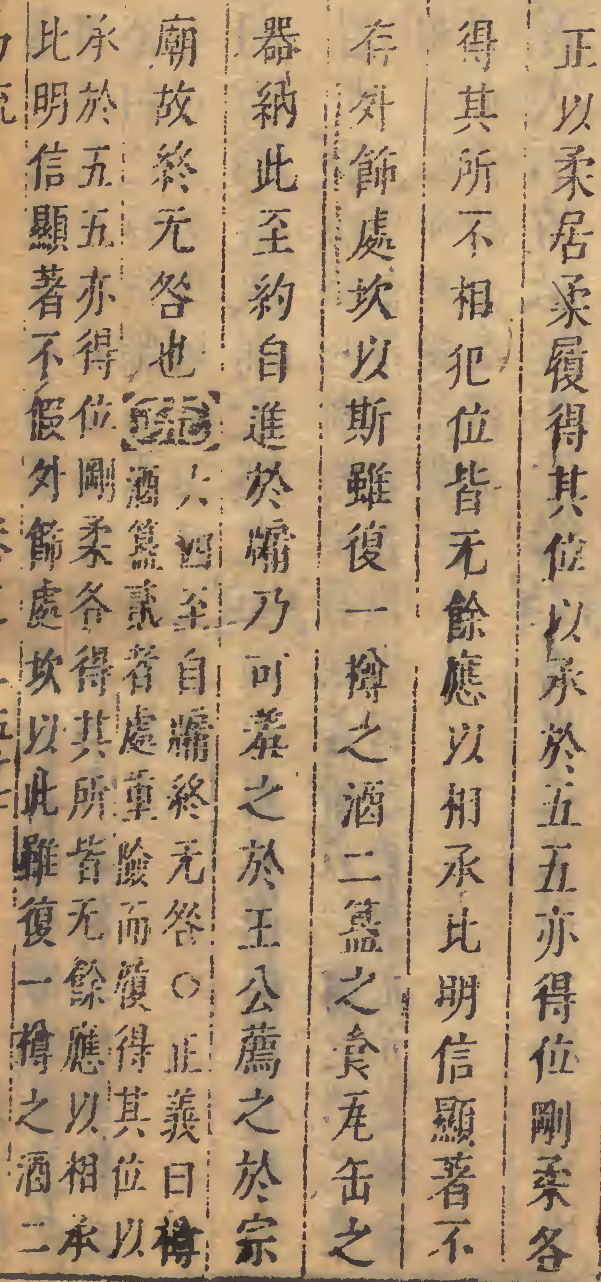 正以柔居柔履得其位以承於五五亦得位剛柔各
得其所不相犯位皆无餘應以相承比明信顯著不
存外飾處坎以斯雖復一樽之酒二簋之食瓦缶之
器納此至約自進於牖乃可羞之於王公薦之於宗
廟故終无咎也疏六四至自牖終无咎○正義曰樽
酒簋貳者處重險而履得其位以
承於五五亦得位剛柔各得其所皆无餘應以相承
比明信顯著不假外飾處坎以此雖復一樽之酒二